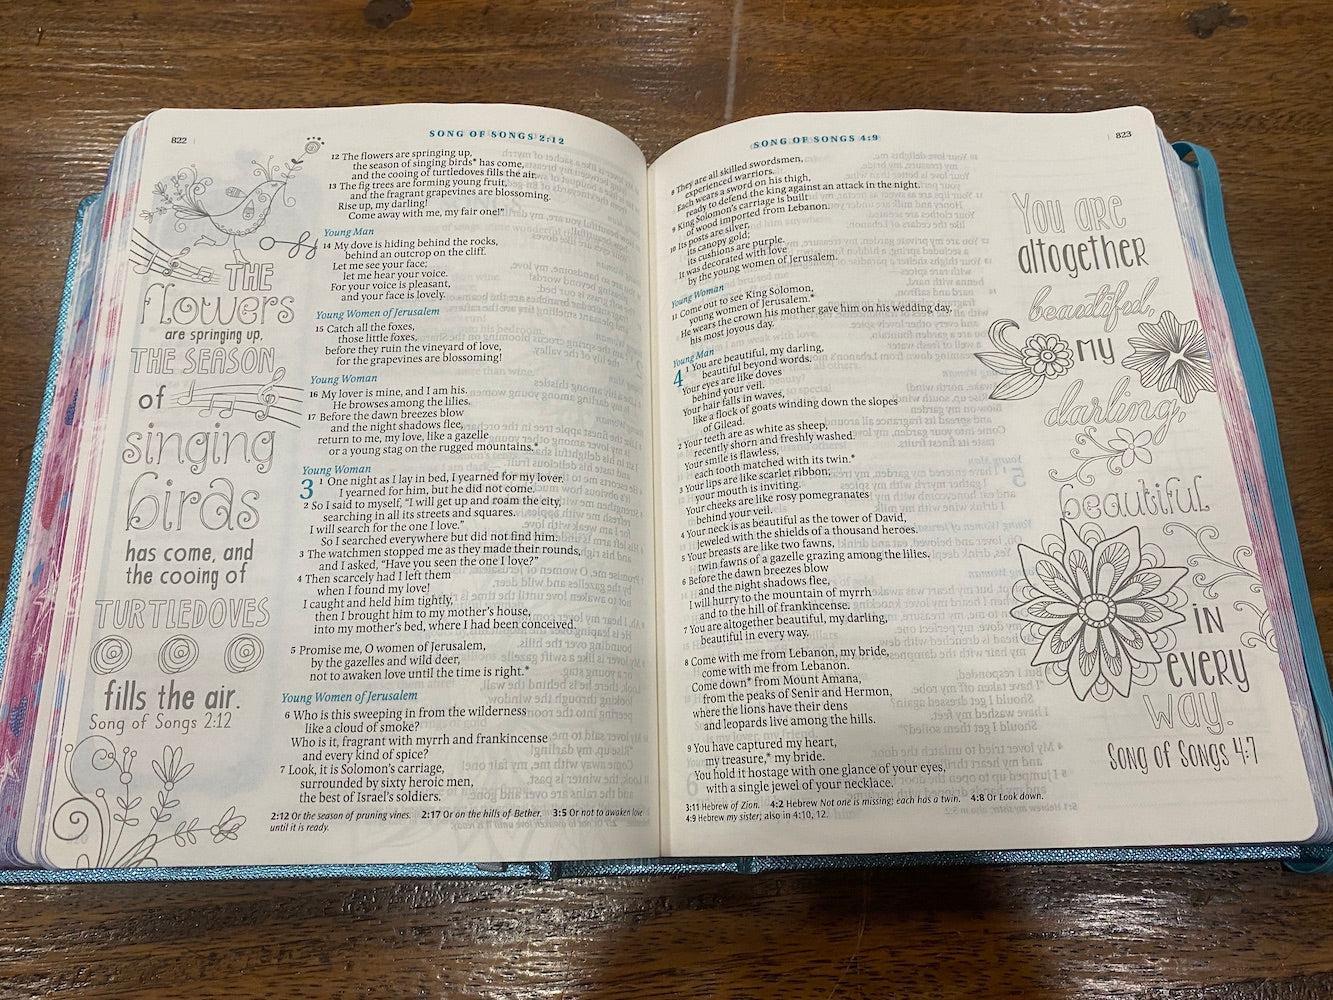 822
SONG OF SONGS 2:12
THE
flowers
are springing up,
THE SEASON
of
singing
birds
has come, and
the cooing of
TURTLEDOVES
fills the air.
Song of Songs 2:12
12 The flowers are springing up,
the season of singing birds* has come,
and the cooing of turtledoves fills the air.
13 The fig trees are forming young fruit,
and the fragrant grapevines are blossoming.
Rise up, my darling!
Come away with me, my fair one!”
Young Man
14 My dove is hiding behind the rocks,
behind an outcrop on the cliff.
Let me see your face;
let me hear your voice.
For your voice is pleasant,
and your face is lovely.
Young Women of Jerusalem
15 Catch all the foxes,
those little foxes,
before they ruin the vineyard of love,
for the grapevines are blossoming!
Young Woman
16 My lover is mine, and I am his.
He browses among the lilies.
17 Before the dawn breezes blow
and the night shadows flee,
return to me, my love, like a gazelle
or a young stag on the rugged mountains.*
Young Woman
3 1 One night as I lay in bed, I yearned for my lover.
I yearned for him, but he did not come.
2 So I said to myself, “I will get up and roam the city,
searching in all its streets and squares.
I will search for the one I love.”
So I searched everywhere but did not find him.
3 The watchmen stopped me as they made their rounds,
and I asked, “Have you seen the one I love?”
4 Then scarcely had I left them
when I found my love!
I caught and held him tightly,
then I brought him to my mother’s house,
into my mother’s bed, where I had been conceived.
5 Promise me, O women of Jerusalem,
by the gazelles and wild deer,
not to awaken love until the time is right.*
Young Women of Jerusalem
6 Who is this sweeping in from the wilderness
like a cloud of smoke?
Who is it, fragrant with myrrh and frankincense
and every kind of spice?
7 Look, it is Solomon’s carriage,
surrounded by sixty heroic men,
the best of Israel’s soldiers.
2:12 Or the season of pruning vines. 2:17 Or on the hills of Bether. 3:5 Or not to awaken love
until it is ready.
SONG OF SONGS 4:9
823
8 They are all skilled swordsmen,
experienced warriors.
Each wears a sword on his thigh,
ready to defend the king against an attack in the night.
9 King Solomon’s carriage is built
of wood imported from Lebanon.
10 Its posts are silver,
its canopy gold;
its cushions are purple.
It was decorated with love
by the young women of Jerusalem.
Young Woman
11 Come out to see King Solomon,
young women of Jerusalem.*
He wears the crown his mother gave him on his wedding day,
his most joyous day.
Young Man
4 1 You are beautiful, my darling,
beautiful beyond words.
Your eyes are like doves
behind your veil.
Your hair falls in waves,
like a flock of goats winding down the slopes
of Gilead.
2 Your teeth are as white as sheep,
recently shorn and freshly washed.
Your smile is flawless,
each tooth matched with its twin.*
3 Your lips are like scarlet ribbon;
your mouth is inviting.
Your cheeks are like rosy pomegranates
behind your veil.
4 Your neck is as beautiful as the tower of David,
jeweled with the shields of a thousand heroes.
5 Your breasts are like two fawns,
twin fawns of a gazelle grazing among the lilies.
6 Before the dawn breezes blow
and the night shadows flee,
I will hurry to the mountain of myrrh
and to the hill of frankincense.
7 You are altogether beautiful, my darling,
beautiful in every way.
8 Come with me from Lebanon, my bride,
come with me from Lebanon.
Come down* from Mount Amana,
from the peaks of Senir and Hermon,
where the lions have their dens
and leopards live among the hills.
9 You have captured my heart,
my treasure,* my bride.
You hold it hostage with one glance of your eyes,
with a single jewel of your necklace.
3:11 Hebrew of Zion. 4:2 Hebrew Not one is missing; each has a twin. 4:8 Or Look down.
4:9 Hebrew my sister; also in 4:10, 12.
You are
altogether
beautiful,
my
darling,
beautiful
in
every
way.
Song of Songs 4:7